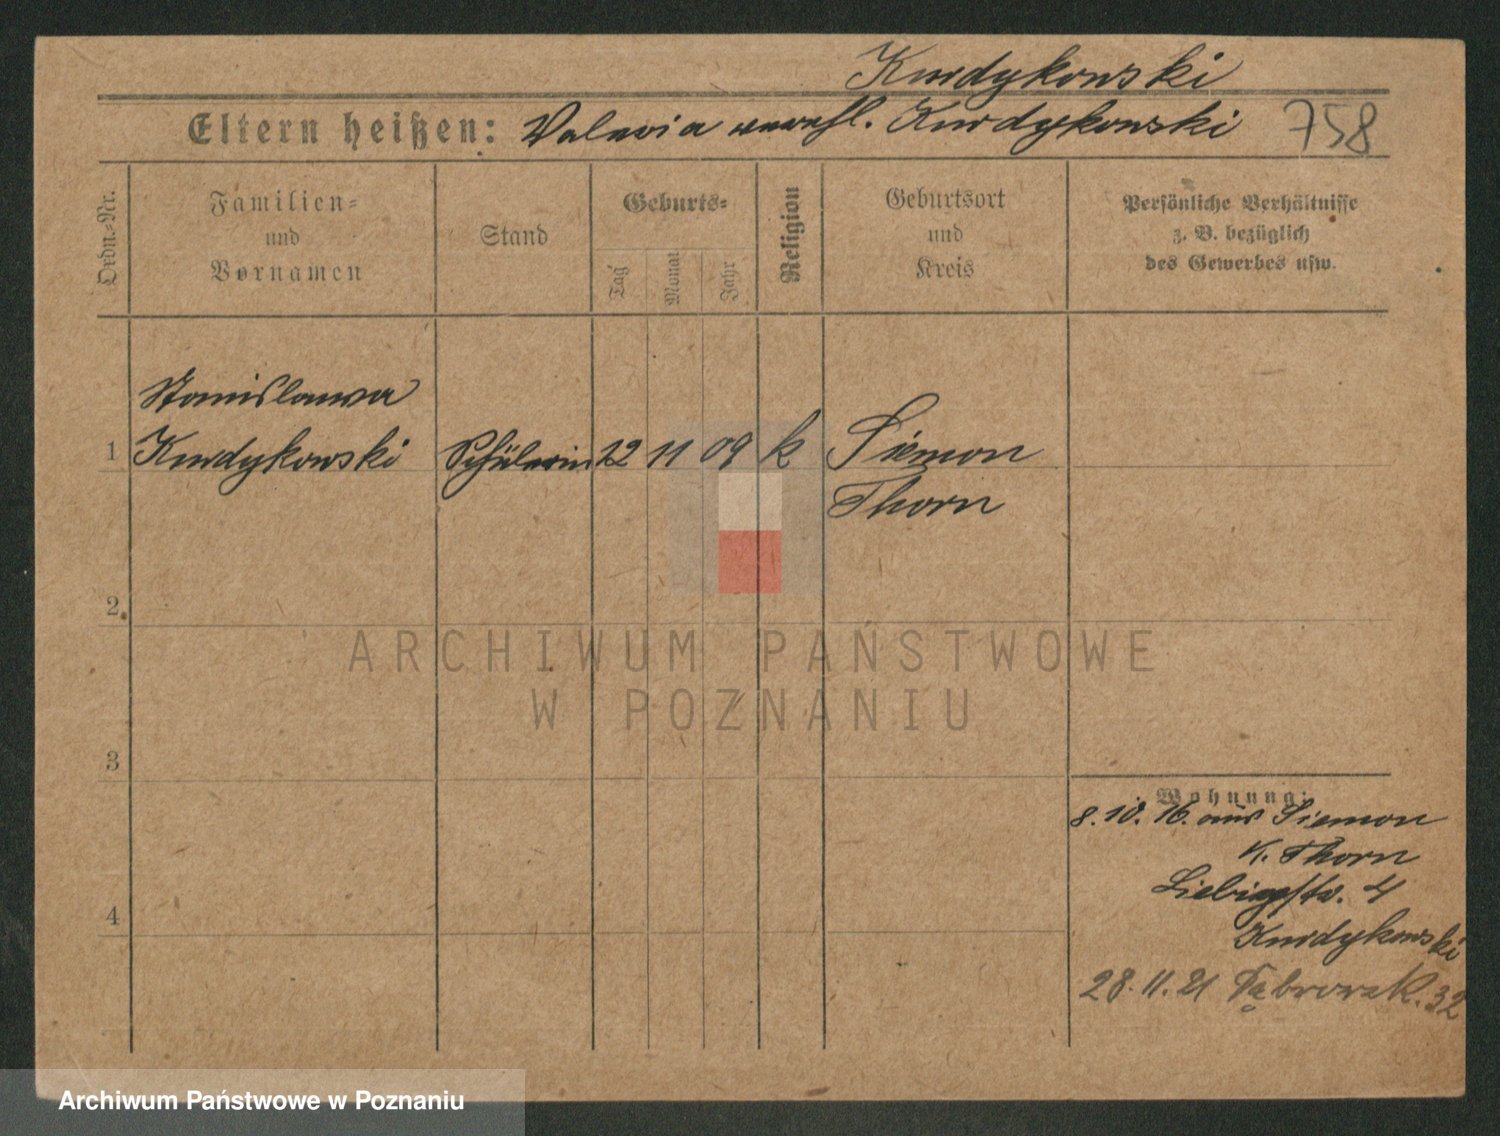 Kurdykowski
Eltern heißen: Valeria verehl. Kurdykowski 758
Ordn.-Nr.
Familien-
und
Vornamen
Stand
Geburts-
Tag
Monat
Jahr
Religion
Geburtsort
und
Kreis
Persönliche Verhältnisse
z. B. bezüglich
des Gewerbes usw.
Stanislawa
1 Kurdykowski Schülerin 12 11 09 k Siemon
Thorn
2
3
4
Wohnung:
8. 10. 16. aus Siemon
K. Thorn
Liebigstr. 4
Kurdykowski
28. 11. 21 Dąbrowsk. 32
ARCHIWUM PAŃSTWOWE
W POZNANIU
Archiwum Państwowe w Poznaniu